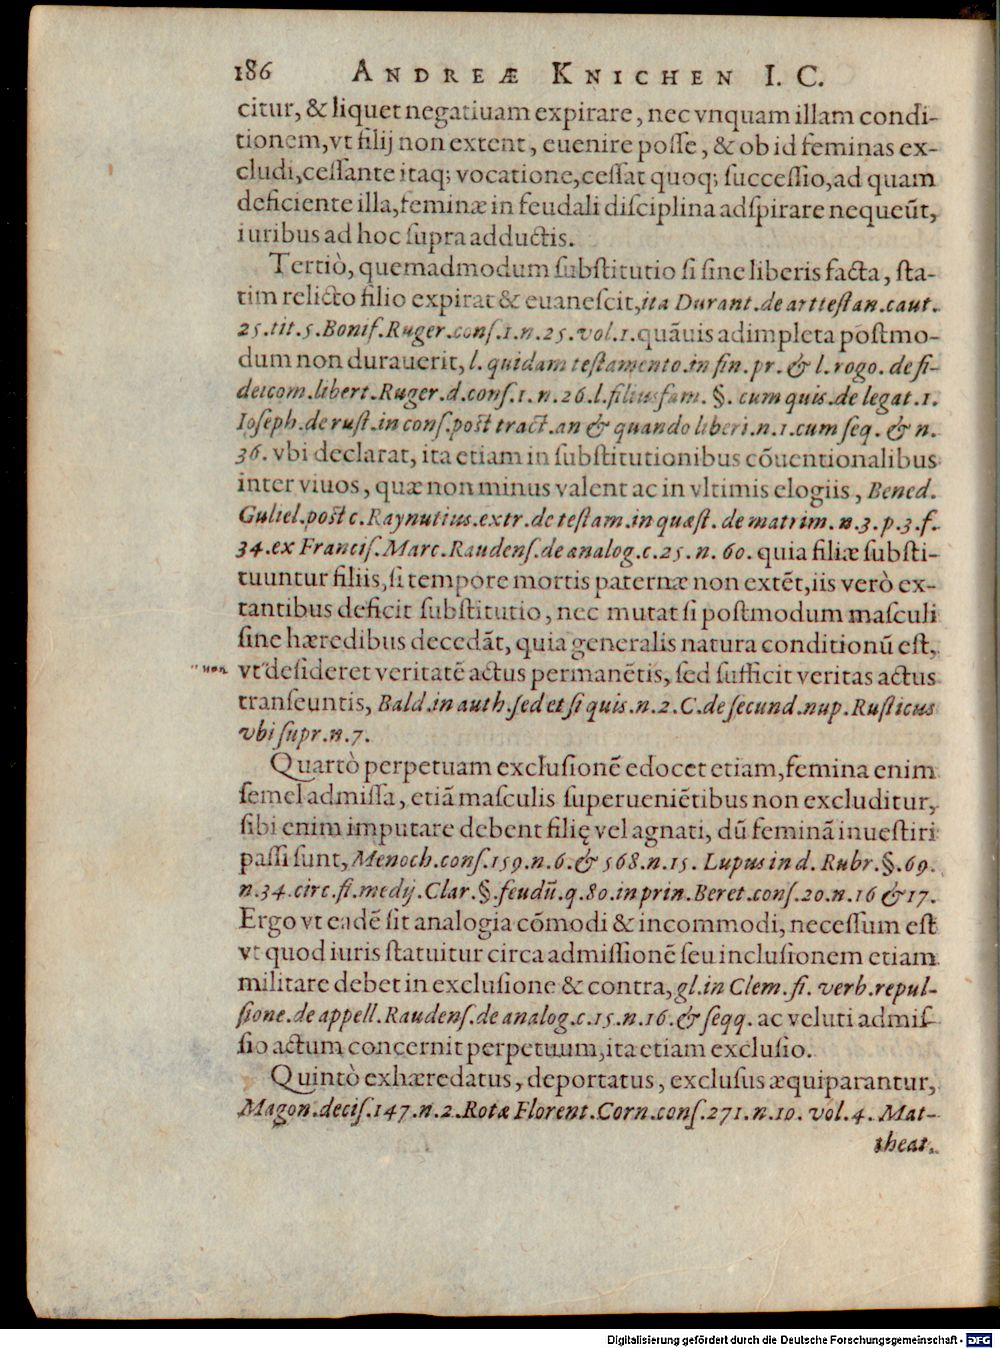 186 ANDREÆ KNICHEN I. C.
citur, & liquet negatiuam expirare, nec vnquam illam condi-
tionem, vt filij non extent, euenire posse, & ob id feminas ex-
cludi, cessante itaq; vocatione, cessat quoq; successio, ad quam
deficiente illa, feminæ in feudali disciplina adspirare nequeūt,
iuribus ad hoc supra adductis.
Tertiò, quemadmodum substitutio si sine liberis facta, sta-
tim relicto filio expirat & euanescit, ita Durant. de art testan. caut.
25. tit. 5. Bonif. Ruger. cons. 1. n. 25. vol. 1. quāuis adimpleta postmo-
dum non durauerit, l. quidam testamento. in fin. pr. & l. rogo. de fi-
deicom. libert. Ruger. d. cons. 1. n. 26. l. filiusfam. §. cum quis. de legat. 1.
Ioseph. de rust. in cons. post tract. an & quando liberi. n. 1. cum seq. & n.
36. vbi declarat, ita etiam in substitutionibus cōuentionalibus
inter viuos, quæ non minus valent ac in vltimis elogiis, Bened.
Guliel. post c. Raynutius. extr. de testam. in quæst. de matrim. n. 3. p. 3. f.
34. ex Francis. Marc. Raudens. de analog. c. 25. n. 60. quia filiæ substi-
tuuntur filiis, si tempore mortis paternæ non extēt, iis verò ex-
tantibus deficit substitutio, nec mutat si postmodum masculi
sine hæredibus decedāt, quia generalis natura conditionū est,
"non vt" desideret veritatē actus permanētis, sed sufficit veritas actus
transeuntis, Bald. in auth. sed et si quis. n. 2. C. de secund. nup. Rusticus
vbi supr. n. 7.
Quartò perpetuam exclusionē edocet etiam, femina enim
semel admissa, etiā masculis superueniētibus non excluditur,
sibi enim imputare debent filię vel agnati, dū feminā inuestiri
passi sunt, Menoch. cons. 159. n. 6. & 568. n. 15. Lupus in d. Rubr. §. 69.
n. 34. circ. fi. medij. Clar. §. feudū. q. 80. in prin. Beret. cons. 20. n. 16 & 17.
Ergo vt eadē sit analogia cōmodi & incommodi, necessum est
vt quod iuris statuitur circa admissionē seu inclusionem etiam
militare debet in exclusione & contra, gl. in Clem. fi. verb. repul-
sione. de appell. Raudens. de analog. c. 15. n. 16. & seqq. ac veluti admis-
sio actum concernit perpetuum, ita etiam exclusio.
Quintò exhæredatus, deportatus, exclusus æquiparantur,
Magon. decis. 147. n. 2. Rotæ Florent. Corn. cons. 271. n. 10. vol. 4. Mat-
theat.
Digitalisierung gefördert durch die Deutsche Forschungsgemeinschaft - DFG